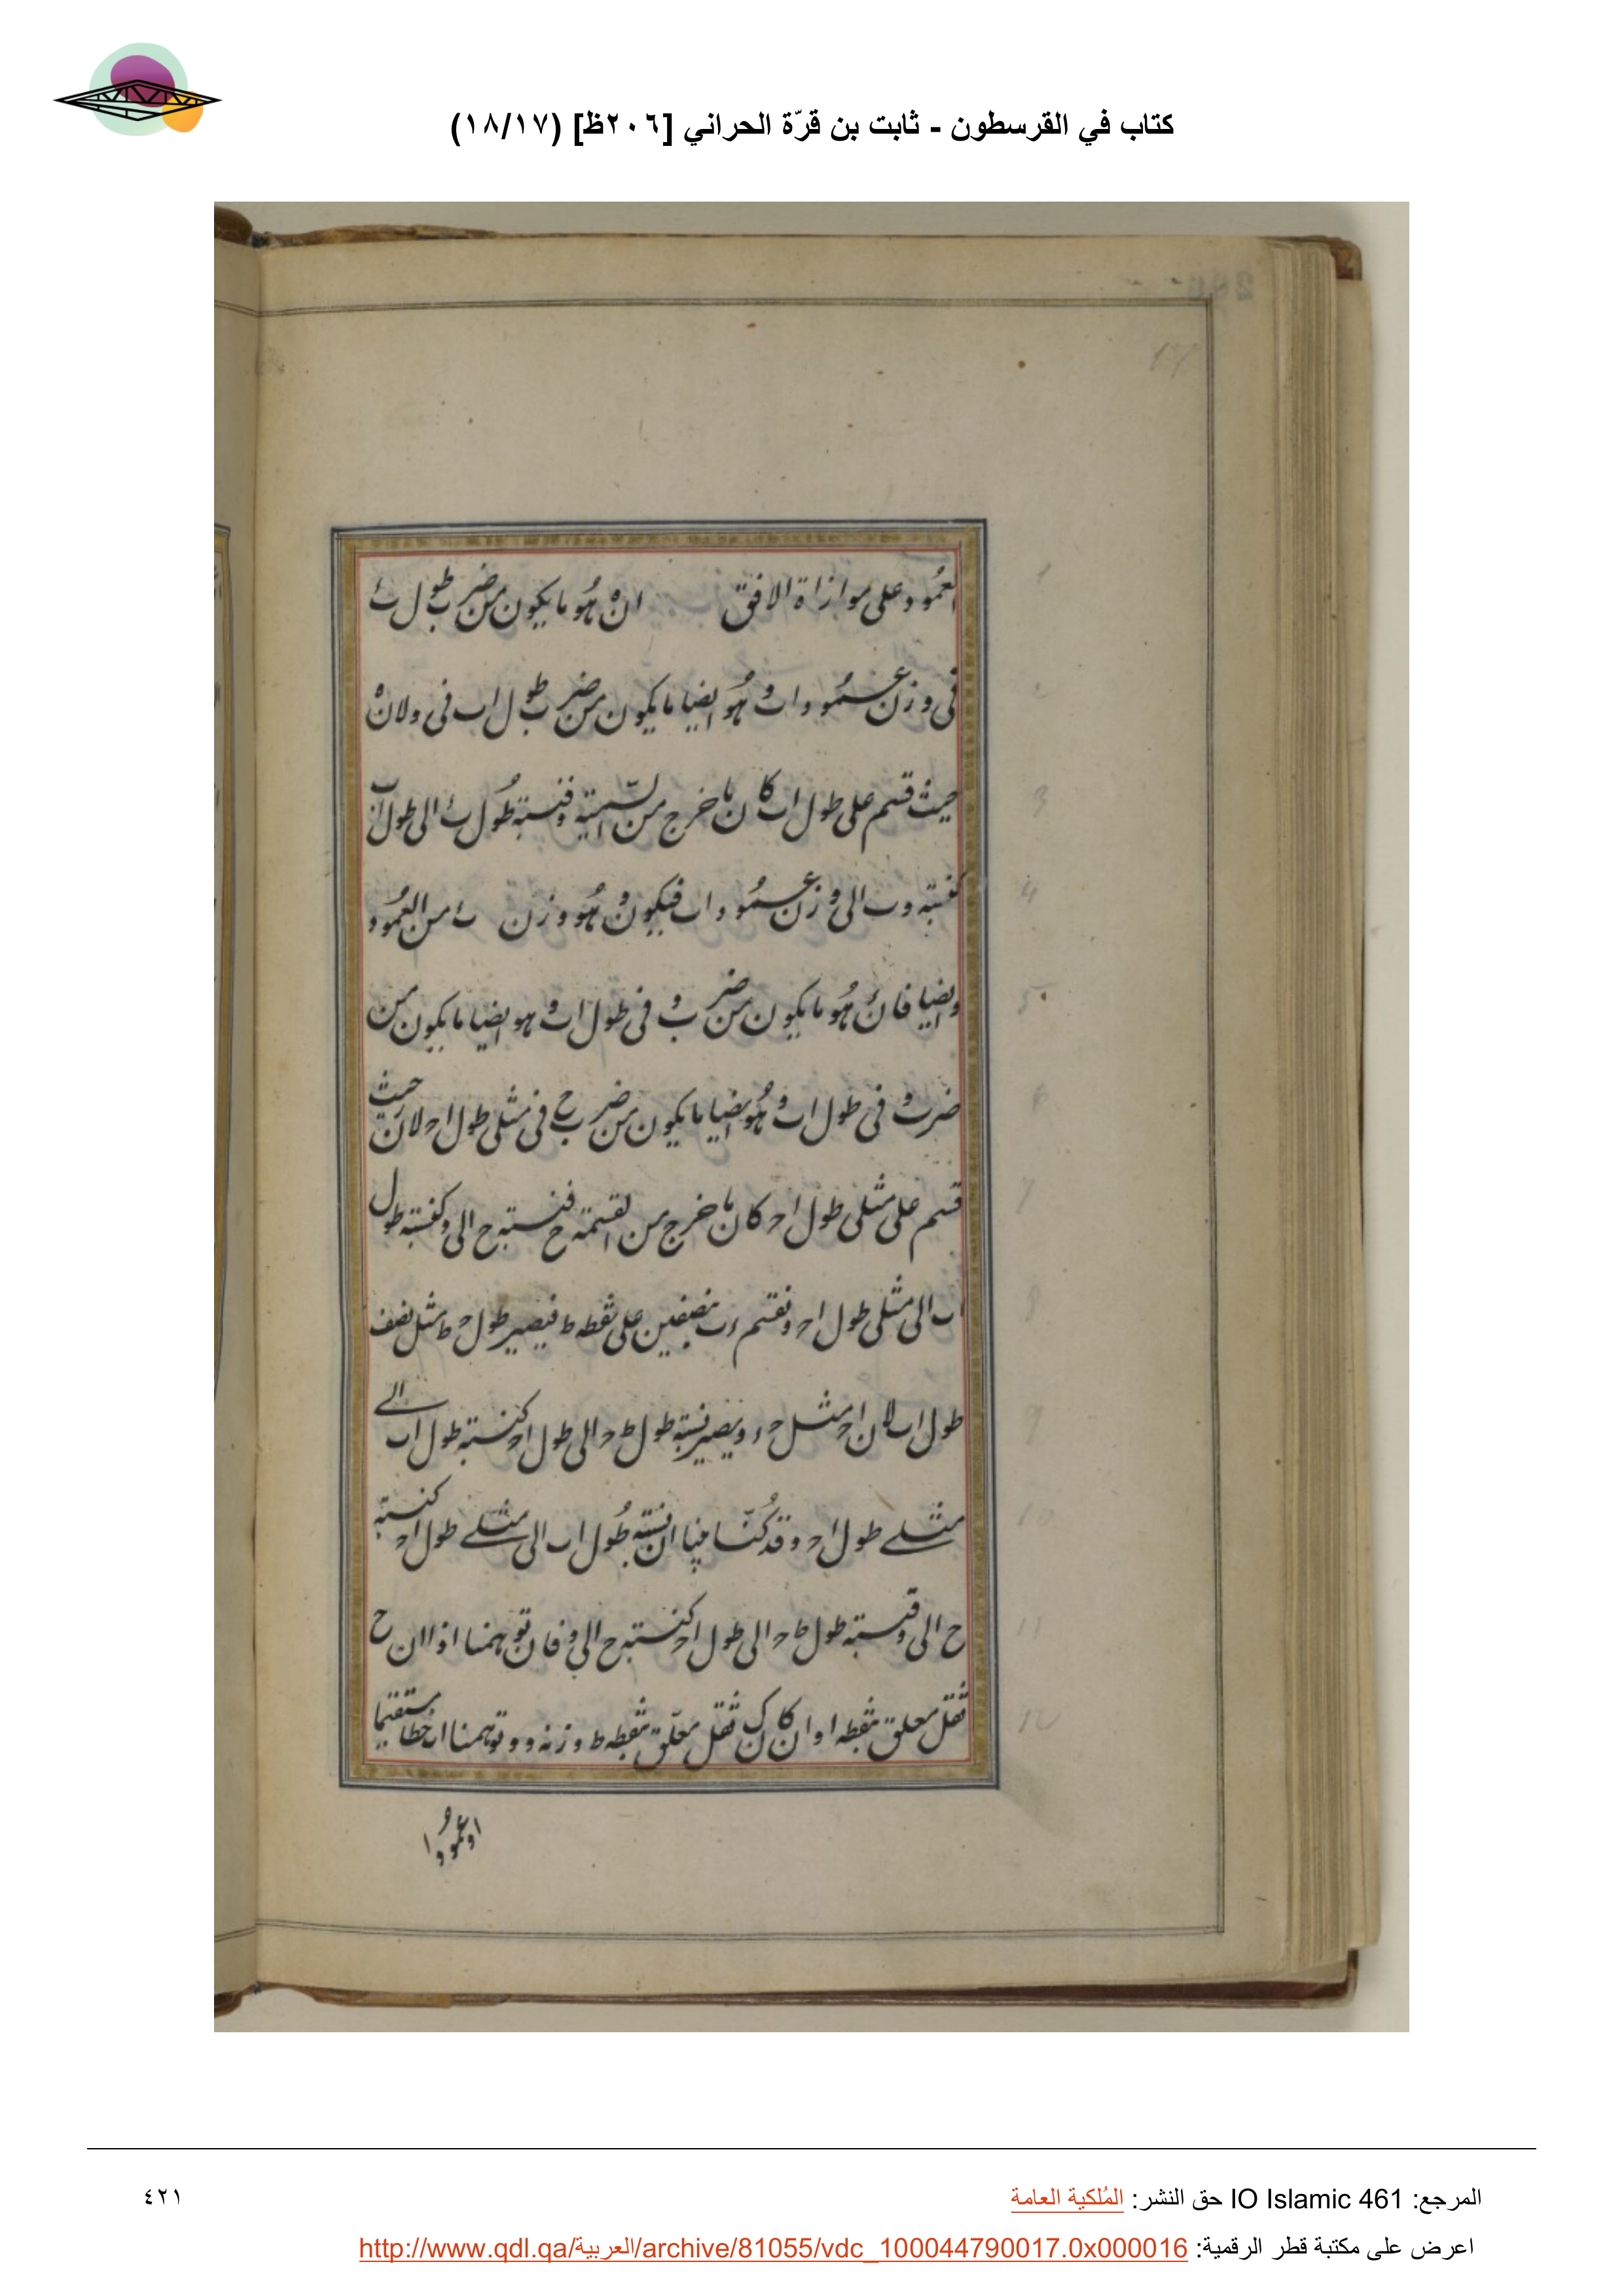 كتاب في القرسطون - ثابت بن قرّة الحراني [٢٠٦ظ] (١٨/١٧)
العمود على موازاة الافق ان ه هو ما يكون من ضرب طول ب ء
فى وزن عمود اب و هو ايضا ما يكون من ضرب طول اب فى و لان ه
حيث قسم على طول اب كان ما خرج من القسمة و فنسبة طول ب ء الى طول اب
كنسبة و الى وزن عمود اب فيكون و هو وزن ب ء من العمود
و ايضا فان ه هو ما يكون من ضرب و فى طول اب و هو ايضا ما يكون من
ضرب و فى طول اب و هو ايضا ما يكون من ضرب ح فى مثلى طول اح لان ه حيث
قسم على مثلى طول اح كان ما خرج من القسمة ح فنسبة ح الى و كنسبة طول
اب الى مثلى طول اح و نقسم ء ب نصفين على نقطه ط فيصير طول ح ط مثل نصف
طول اب لان اح مثل ح ء و يصير نسبة طول ط ح الى طول اح كنسبة طول اب الى
مثلى طول اح و قد كنا بينا ان نسبة طول اب الى مثلى طول اح كنسبة
ح الى و فنسبة طول ط ح الى طول اح كنسبة ح الى و فان توهمنا اذا ان ح
ثقل معلق بنقطه ا و ان كان ك ثقل معلق بنقطه ط وزنه و و توهمنا ان خطا مستقيما
او عمودا
المرجع: IO Islamic 461 حق النشر: المُلكية العامة
٤٢١
اعرض على مكتبة قطر الرقمية: http://www.qdl.qa/العربية/archive/81055/vdc_100044790017.0x000016